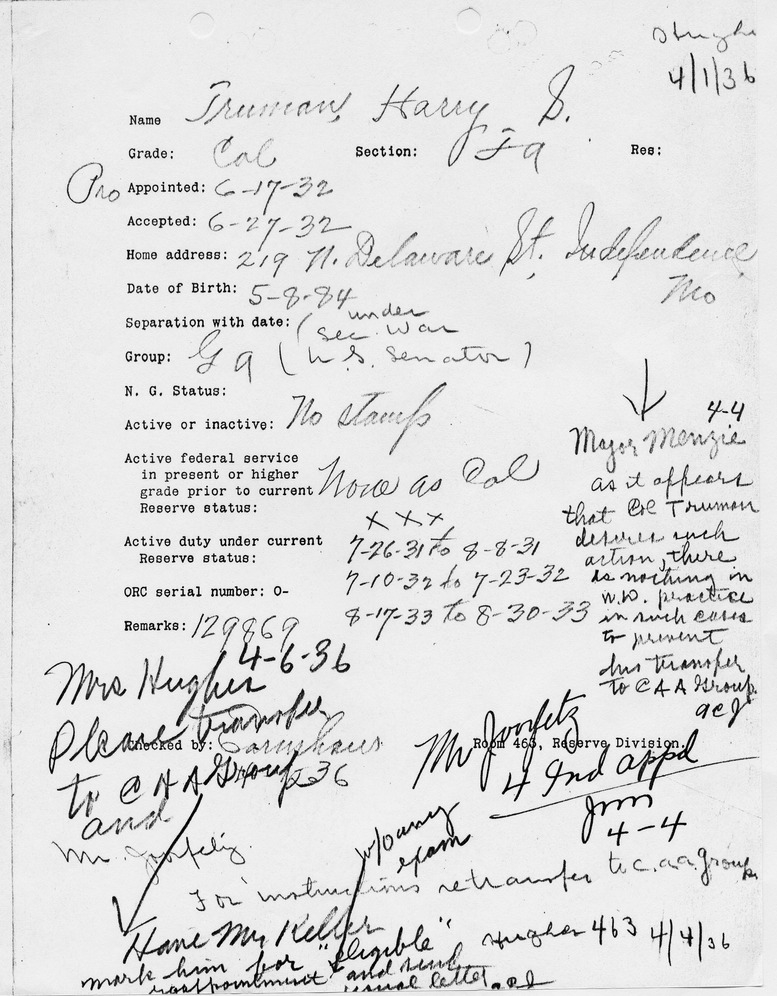 Hughes
4/1/36
Name Truman, Harry S.
Grade: Col Section: Fa Res:
Pro Appointed: 6-17-32
Accepted: 6-27-32
Home address: 219 N. Delaware St. Independence
Mo
Date of Birth: 5-8-84
Separation with date: (under
Sec. War
Group: Ga (U.S. Senator)
N. G. Status:
Active or inactive: No stamps
Active federal service
in present or higher
grade prior to current
Reserve status: None as Col
x x x
Active duty under current
Reserve status: 7-26-31 to 8-8-31
7-10-32 to 7-23-32
8-17-33 to 8-30-33
ORC serial number: O-
Remarks: 129869
4-4
Major Menzie
as it appears
that Col Truman
desires such
action, there
is nothing in
W.D. practice
in such cases
to prevent
his transfer
to CAA Group.
acJ
4-6-36
Mrs Hughes
Please transfer
to CAA Group
and
Checked by:
36
Room 463, Reserve Division.
4 Ind appd
Jmm
4-4
w/o any
exam
For instructions re transfer to c.a.a. group.
Hughes 463 4/4/36
Have Mr Keller
mark him for "eligible"
reappointment and send
usual letter acJ